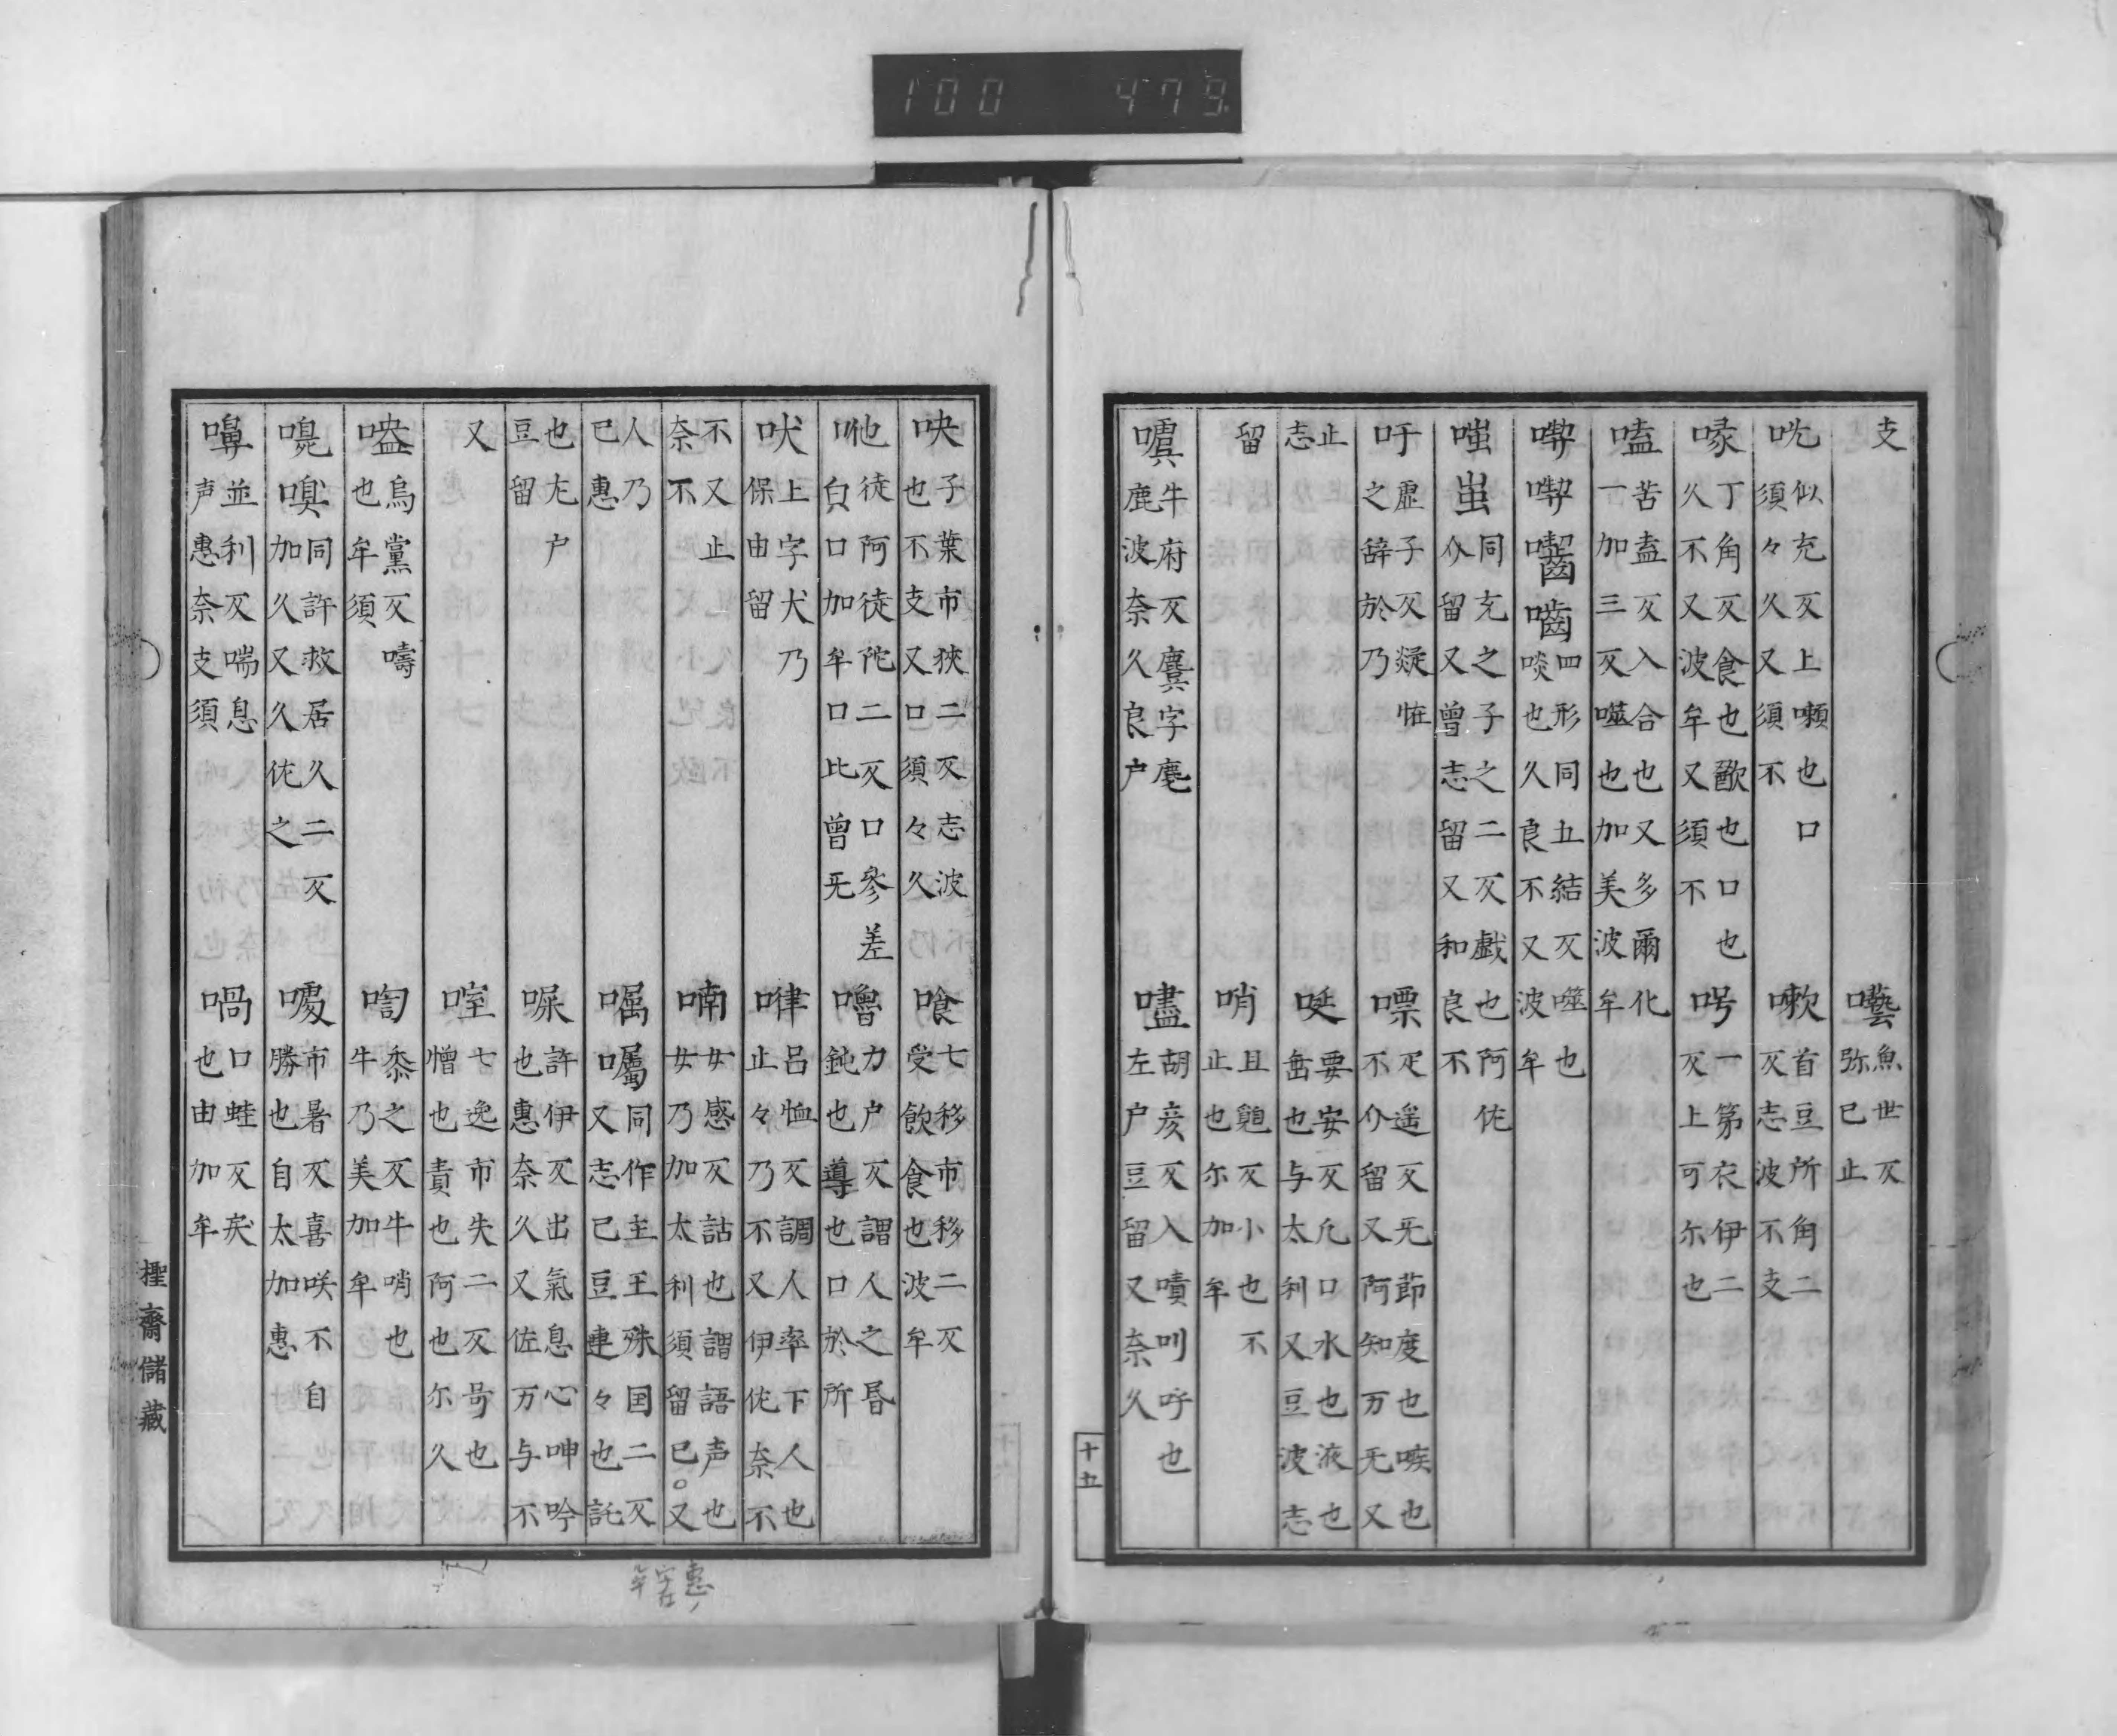 100 479
支
囈魚世反弥己止
吮似充反上嗽也口須々久又須不
嗽首豆所角二反志波不支
喙丁角反食也歠也口也久不又波牟又須不
呝一第衣伊二反上可尓也
嗑苦盍反入合也又多爾化一加三反噬也加美波牟
嚙四形同五結反噬也啖也久良不又波牟
嗤蚩同充之子之二反戯也阿佐介留又曾志留又和良不
吁虛子反疑恠之辞於乃
嘌疋遥反无節度也㗋也不介留又阿知万无又
止志
唌要安反凢口水也液也畓也与太利又豆波志
留
哨且䞓反小也不止也尓加牟
噳牛府反麌字鹿鹿波奈久良户
嚍胡亥反入嘖叫呼也左户豆留又奈久
十五
吷子葉市狹二反志波也不支又口須々久
喰七移市移二反受飲食也波牟
吔徒阿徒陀二反口参差白口加牟口比曾无
嚕力户反謂人之昬鈍也導也口於所
吠上字犬乃保由留
嘩呂恤反調人率下人也止々乃不又伊佐奈不
不又止奈不
喃女感反詀也謂語声也女乃加太利須留己。又
人乃己惠
嘱囑同作主王殊国二反又志己豆連々也託
也尤户豆留
㖞許伊反出氣息心呻吟也惠奈久又佐万与不
又
咥七逸市失二反咢也憎也責也阿也尓久
嗌烏黨反嚋也牟須
㗖黍之反牛哨也牛乃美加牟
嗅同許救居久二反加久又久佐之
嚘市暑反喜咲不自勝也自太加惠
嚊並利反喘息声惠奈支須
喎口蛙反戾也由加牟
㹅齋儲藏